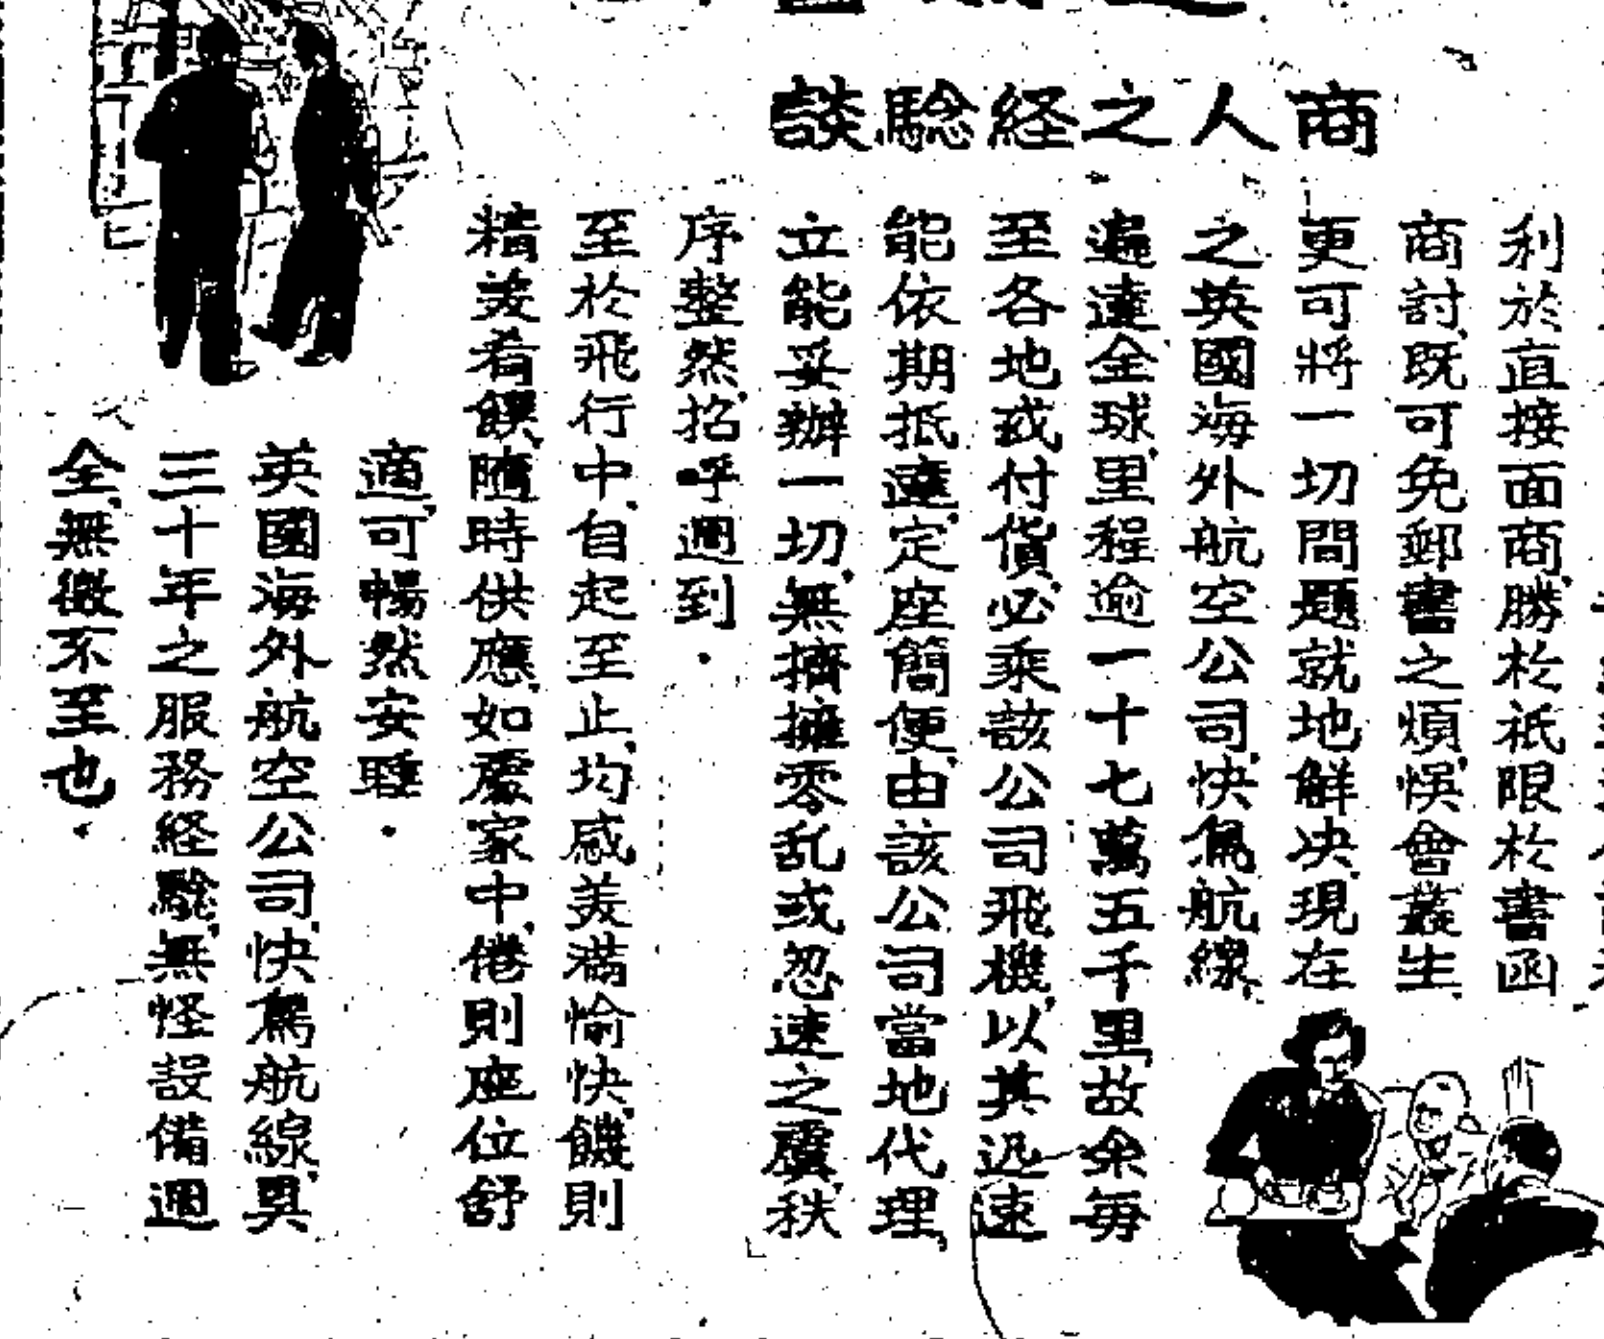 商人之経騐談
利於直接面商，勝於祇限於書函
商討，既可免郵書之煩，悞會叢生
更可將一切問題就地解决，現在
之英國海外航空公司，快鳥航線，
遍達全球，里程逾一十七萬五千里，故余每
至各地或付貨，必乘該公司飛機，以其迅速
能依期抵達，定座簡便，由該公司當地代理，
立能妥辦一切，無擠擁零乱或忽速之虞，秩
序整然，招呼週到．
至於飛行中，自起至止，均感美滿愉快，饑則
精美肴饌，隨時供應，如處家中，倦則座位舒
適，可暢然安睡．
英國海外航空公司，快鳥航線，具
三十年之服務経騐，無怪設備週
全，無微不至也．